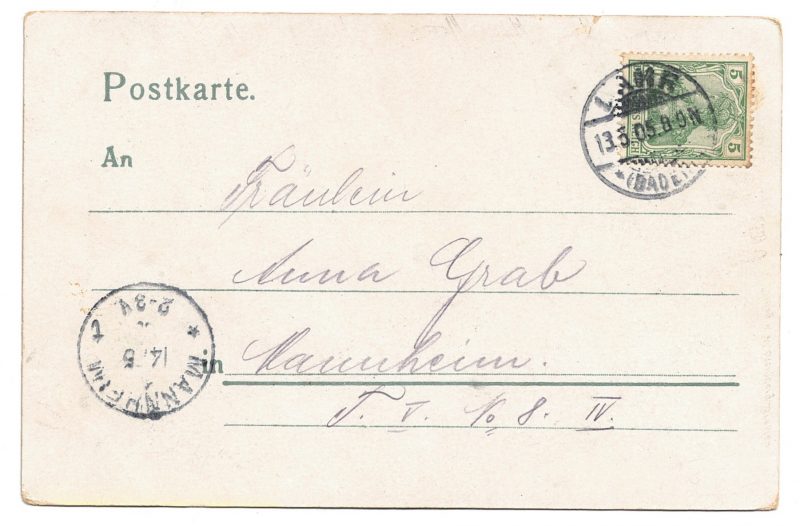 Postkarte.
An
Fräulein
Anna Grab
in Mannheim.
T. 5. No 8. IV.
LAHR
13.5.05.8-9N
* (BADEN)
MANNHEIM
* 1
14. 5
2-3V
5
5